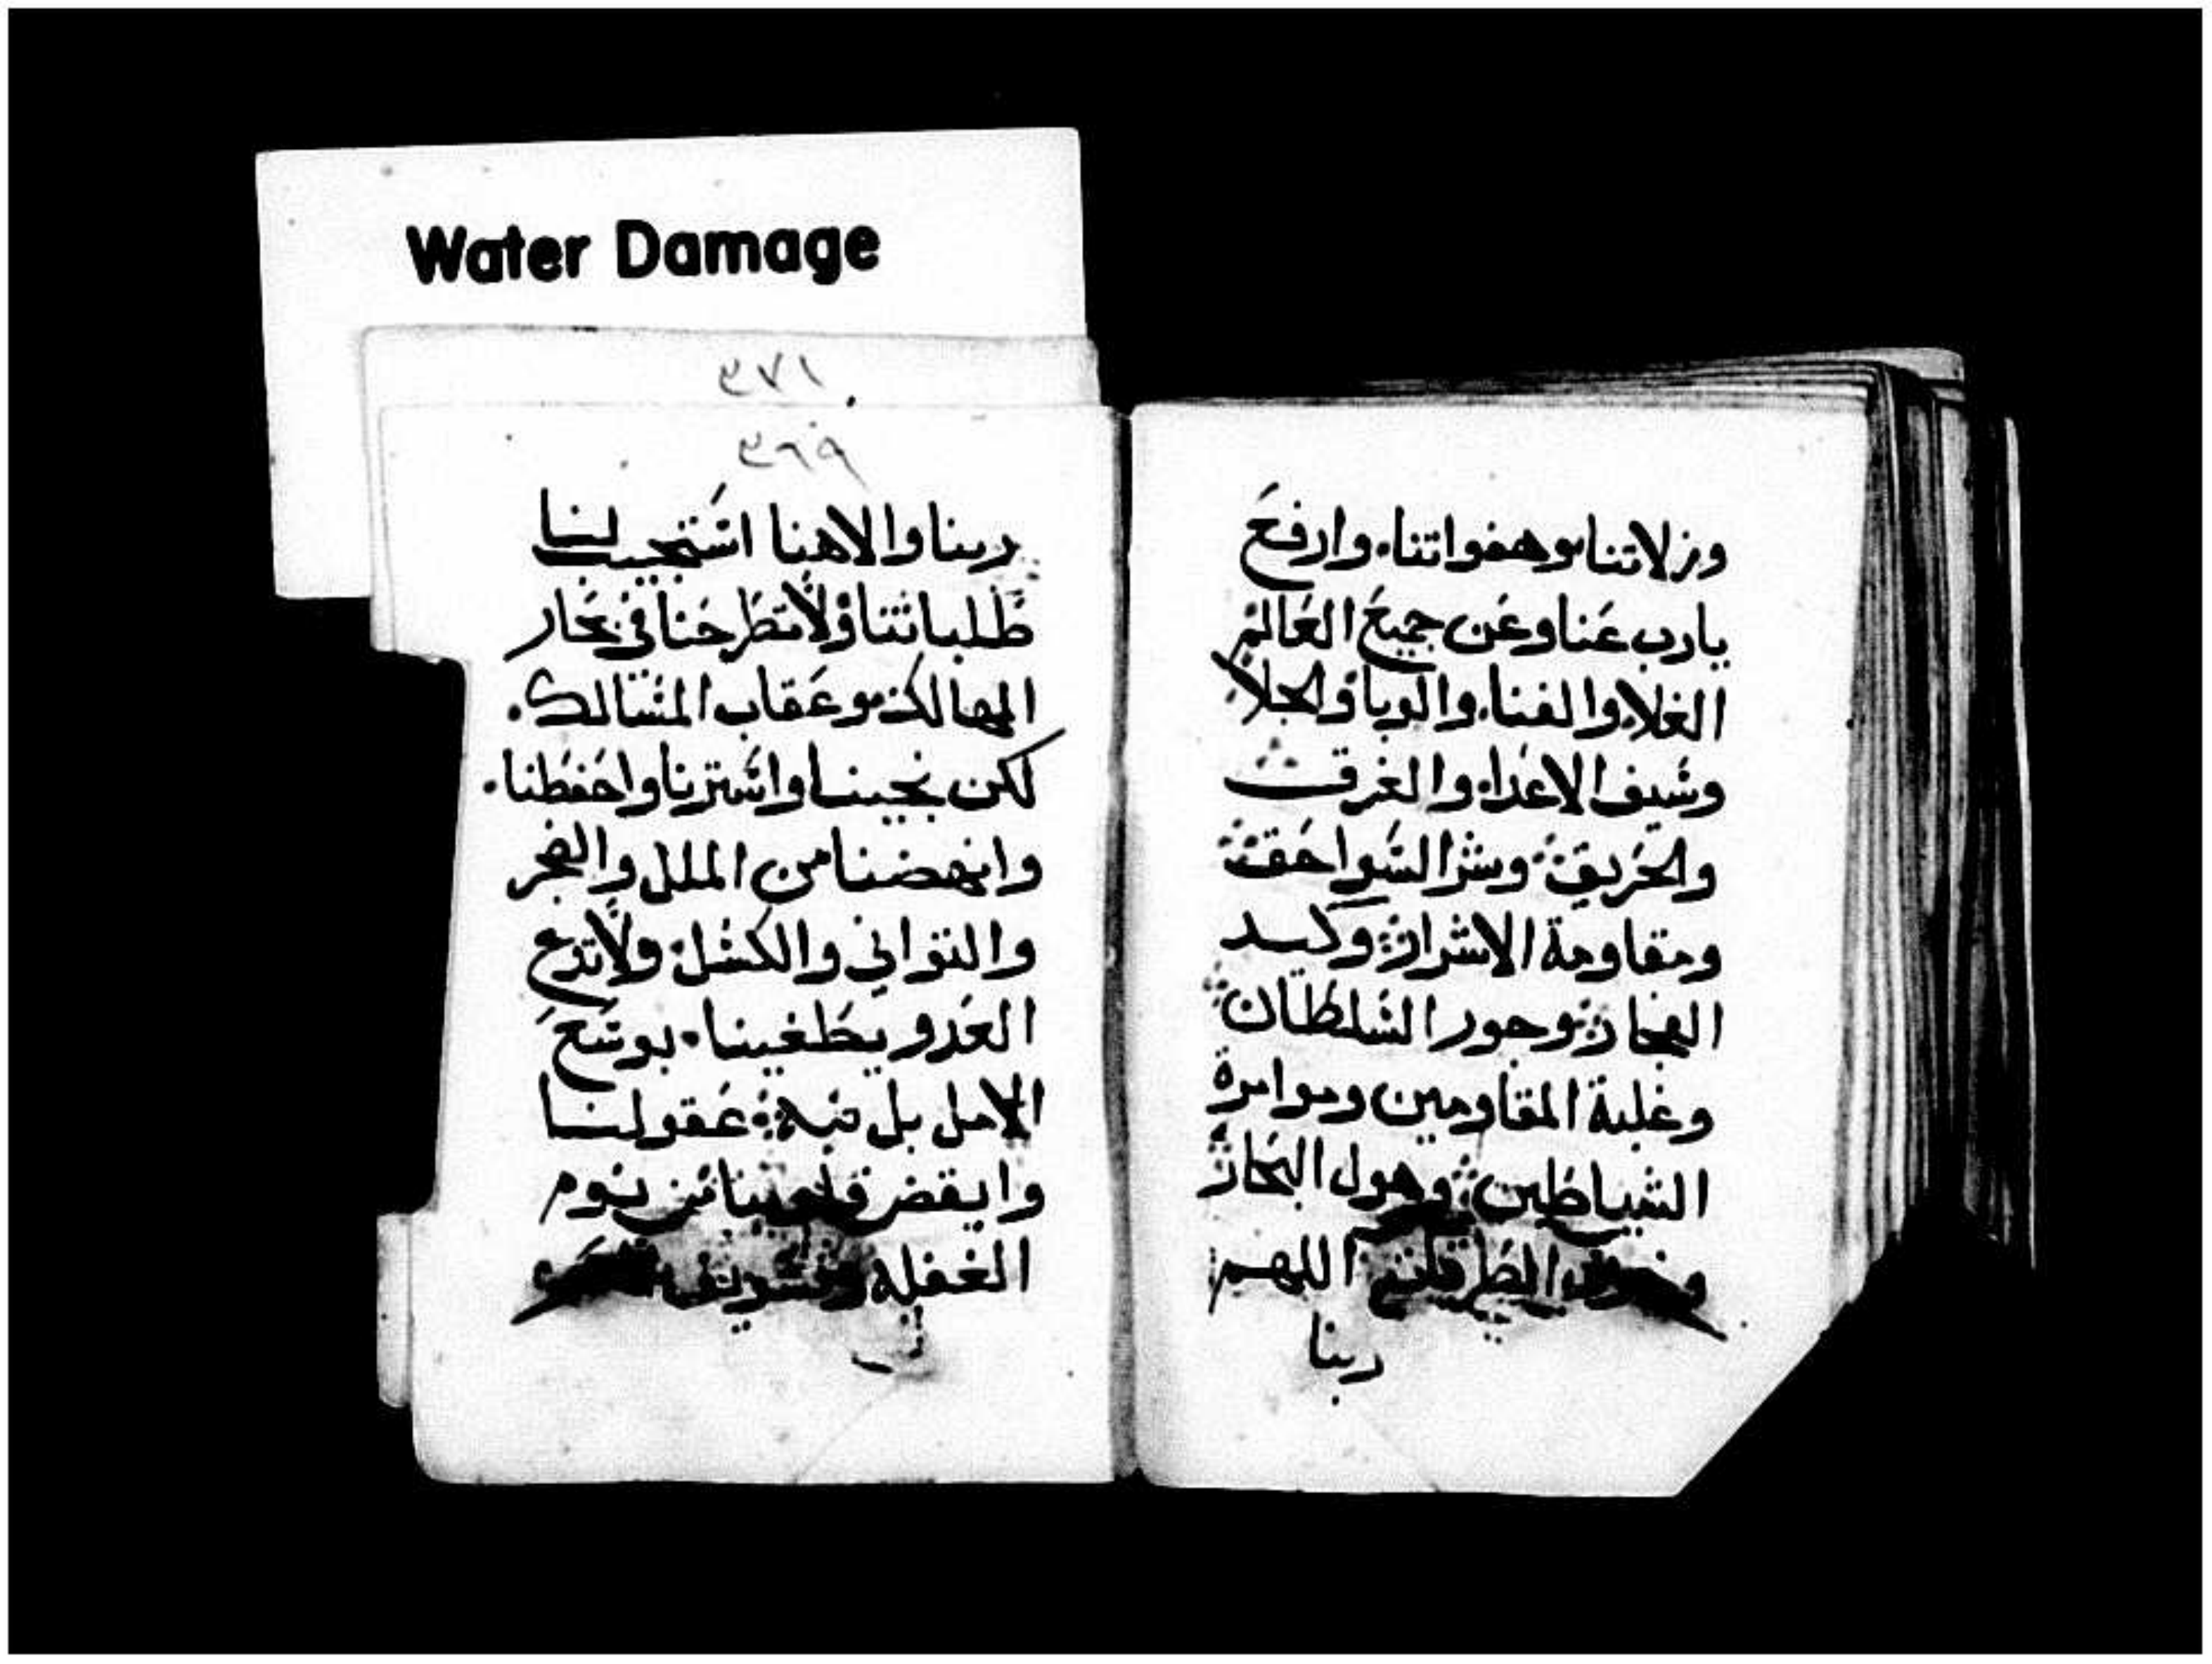 Water Damage
٣٧١
٣٦٩
وزلاتنا وهفواتنا. وارفع
يارب عنا وعن جميع العالم
الغلا والفنا. والوبا والجلا
وسيف الاعدا. والغرق
والحريق وشر السواحق
ومقاومة الاشرار وكيد
الفجار وجور السلطان
وغلبة المقاومين وموامرة
الشياطين وهول البحار
اللهم
ربنا
ربنا والاهنا استجيب لنا
طلباتنا ولا تطرحنا في بحار
المهالك وعقاب المسالك.
لكن نجينا واسترنا واحفظنا.
وانهضنا من الملل والضجر
والتواني والكسل ولا تدع
العدو يطغينا. بوسع
الامل بل نبه عقولنا
وايقض قلوبنا من نوم
الغفله